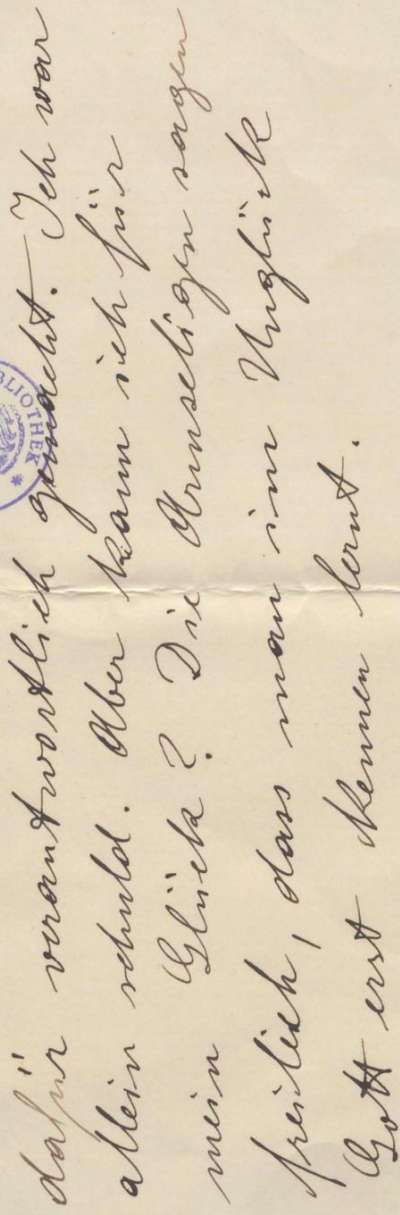 dafür verantwortlich gemacht. Ich war
allein schuld. Aber kann ich für
mein Glück? Die Armseligen sagen
freilich, dass man im Unglück
Gott erst kennen lernt.
BLIOTHEK *